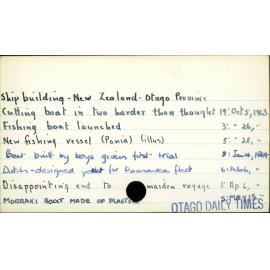 Ship building - New Zealand - Otago Province
Cutting boat in two harder than thought 19: Oct 5, 1963
Fishing boat launched 3: " 26, "
New fishing vessel (Pania) (illus) 5: " 28, "
Boat built by boys given first trial Jan 14, 1964
Dutch-designed yacht for fleet
Disappointing end to maiden voyage Ap 6, "
MOERAKI BOAT MADE OF PLASTER
OTAGO DAILY TIMES